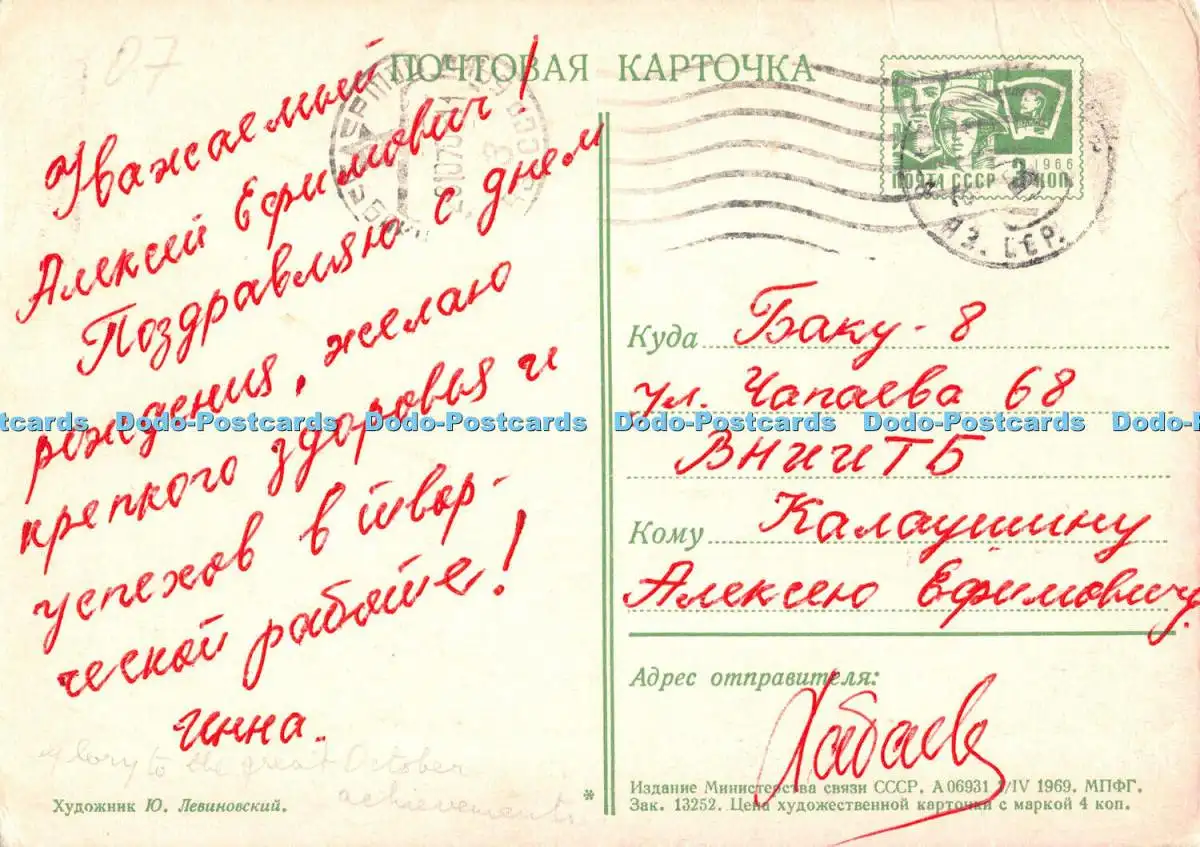 07
ПОЧТОВАЯ КАРТОЧКА
Уважаемый
Алексей Ефимович!
Поздравляю с днем
рождения, желаю
крепкого здоровья и
успехов в твор-
ческой работе!
Инна.
glory to the great October
achievement
Художник Ю. Левиновский.
*
1966
ПОЧТА СССР 3 КОП
АЗ. ССР.
Куда Баку-8
ул. Чапаева 68
ВНИИТБ
Кому Калаушину
Алексею Ефимовичу
Адрес отправителя:
Издание Министерства связи СССР. А 06931 1/IV 1969. МПФГ.
Зак. 13252. Цена художественной карточки с маркой 4 коп.
Dodo-Postcards Dodo-Postcards Dodo-Postcards Dodo-Postcards Dodo-Postcards